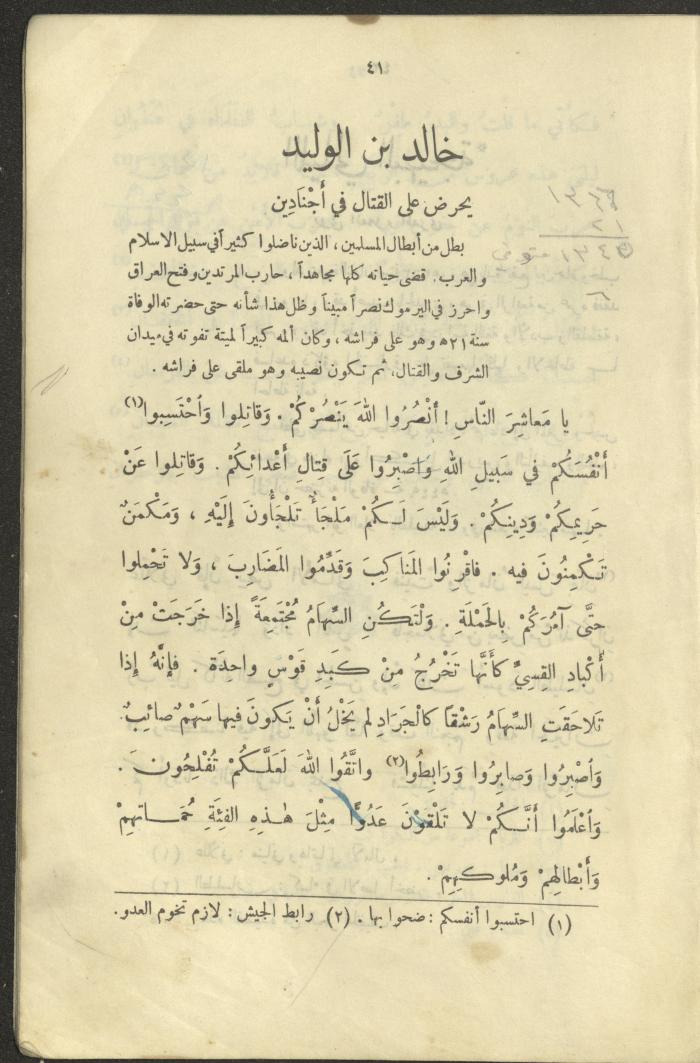 ٤١
خالد بن الوليد
يحرض على القتال في أَجْنَادِين
بطل من أبطال المسلمين ، الذين ناضلوا كثيراً في سبيل الاسلام
والعرب. قضى حياته كلها مجاهداً ، حارب المرتدين وفتح العراق
واحرز في اليرموك نصراً مبيناً وظل هذا شأنه حتى حضرته الوفاة
سنة ٢١ هـ وهو على فراشه ، وكان ألمه كبيراً لميتة تفوته في ميدان
الشرف والقتال، ثم تكون نصيبه وهو ملقى على فراشه .
يا مَعاشِرَ النّاسِ ! أُنْصُرُوا اللهَ يَنْصُرْكُمْ . وَقاتِلوا وَاحْتَسِبوا(١)
أَنْفُسَكُمْ في سَبيلِ اللهِ وَاصْبِرُوا عَلَى قِتالِ أَعْدائِكُمْ . وَقاتِلوا عَنْ
حَرِيمِكُمْ وَدِينِكُمْ . وَلَيْسَ لَكُمْ مَلْجَأٌ تَلْجَأُونَ إِلَيْهِ ، وَمَكْمَنٌ
تَكْمِنُونَ فيه . فاقْرِنُوا المَناكِبَ وَقَدِّمُوا المَضَارِبَ ، وَلا تَحْمِلوا
حتَّى آمُرَكُمْ بِالحَمْلَةِ . وَلْتَكُنِ السِّهَامُ مُجْتَمِعَةً إِذا خَرَجَتْ مِنْ
أَكْبادِ القِسِيِّ كَأَنَّها تَخْرُجُ مِنْ كَبِدِ قَوْسٍ واحِدَة . فإِنَّهُ إِذا
تَلاحَقَتِ السِّهَامُ رَشْقاً كالجَرادِ لم يَخْلُ أَنْ يَكونَ فيها سَهْمٌ صائِبٌ.
وَاصْبِرُوا وَصابِرُوا وَرَابِطُوا(٢) واتَّقُوا اللهَ لَعَلَّكُمْ تُفْلِحُونَ .
وَاعْلَمُوا أَنَّكُمْ لا تَلْقَوْنَ عَدُوًّا مِثْلَ هٰذِهِ الفِئَةِ حُمَاتِهِمْ
وَأَبْطالِهِمْ وَمُلوكِهِمْ .
(١) احتسبوا أنفسكم : ضحوا بها . (٢) رابط الجيش : لازم تخوم العدو.